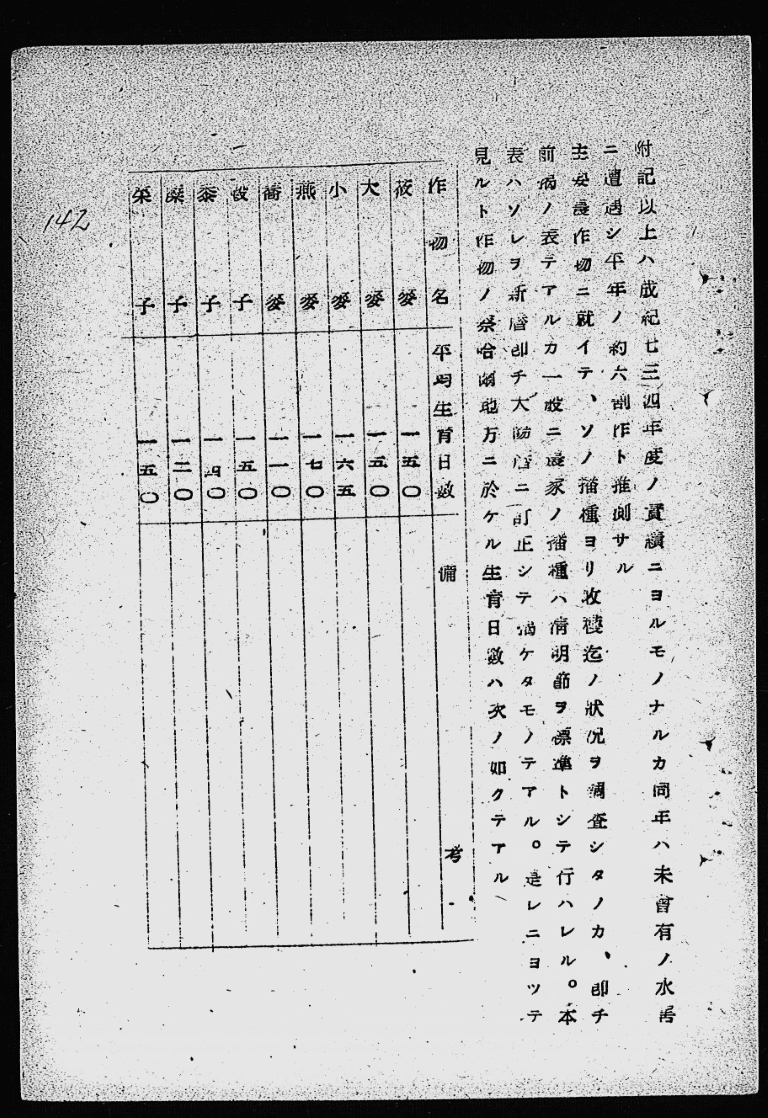 附記以上ハ成紀七三四年度ノ實績ニヨルモノナルカ同年ハ未曾有ノ水害
ニ遭遇シ平年ノ約六割作ト推測サル
主要農作物ニ就イテ、ソノ播種ヨリ收穫迄ノ狀況ヲ調査シタノカ、卽チ
前揭ノ表テアルカ一般ニ農家ノ播種ハ淸明節ヲ標準トシテ行ハレル。本
表ハソレヲ新曆卽チ大陽曆ニ訂正シテ揭ケタモノテアル。是レニヨツテ
見ルト作物ノ察哈爾地方ニ於ケル生育日數ハ次ノ如クテアル
作物名 平均生育日數 備考
莜麥 一五〇
大麥 一五〇
小麥 一六五
燕麥 一七〇
蕎麥 一一〇
穀子 一五〇
黍子 一四〇
糜子 一二〇
菜子 一五〇
142